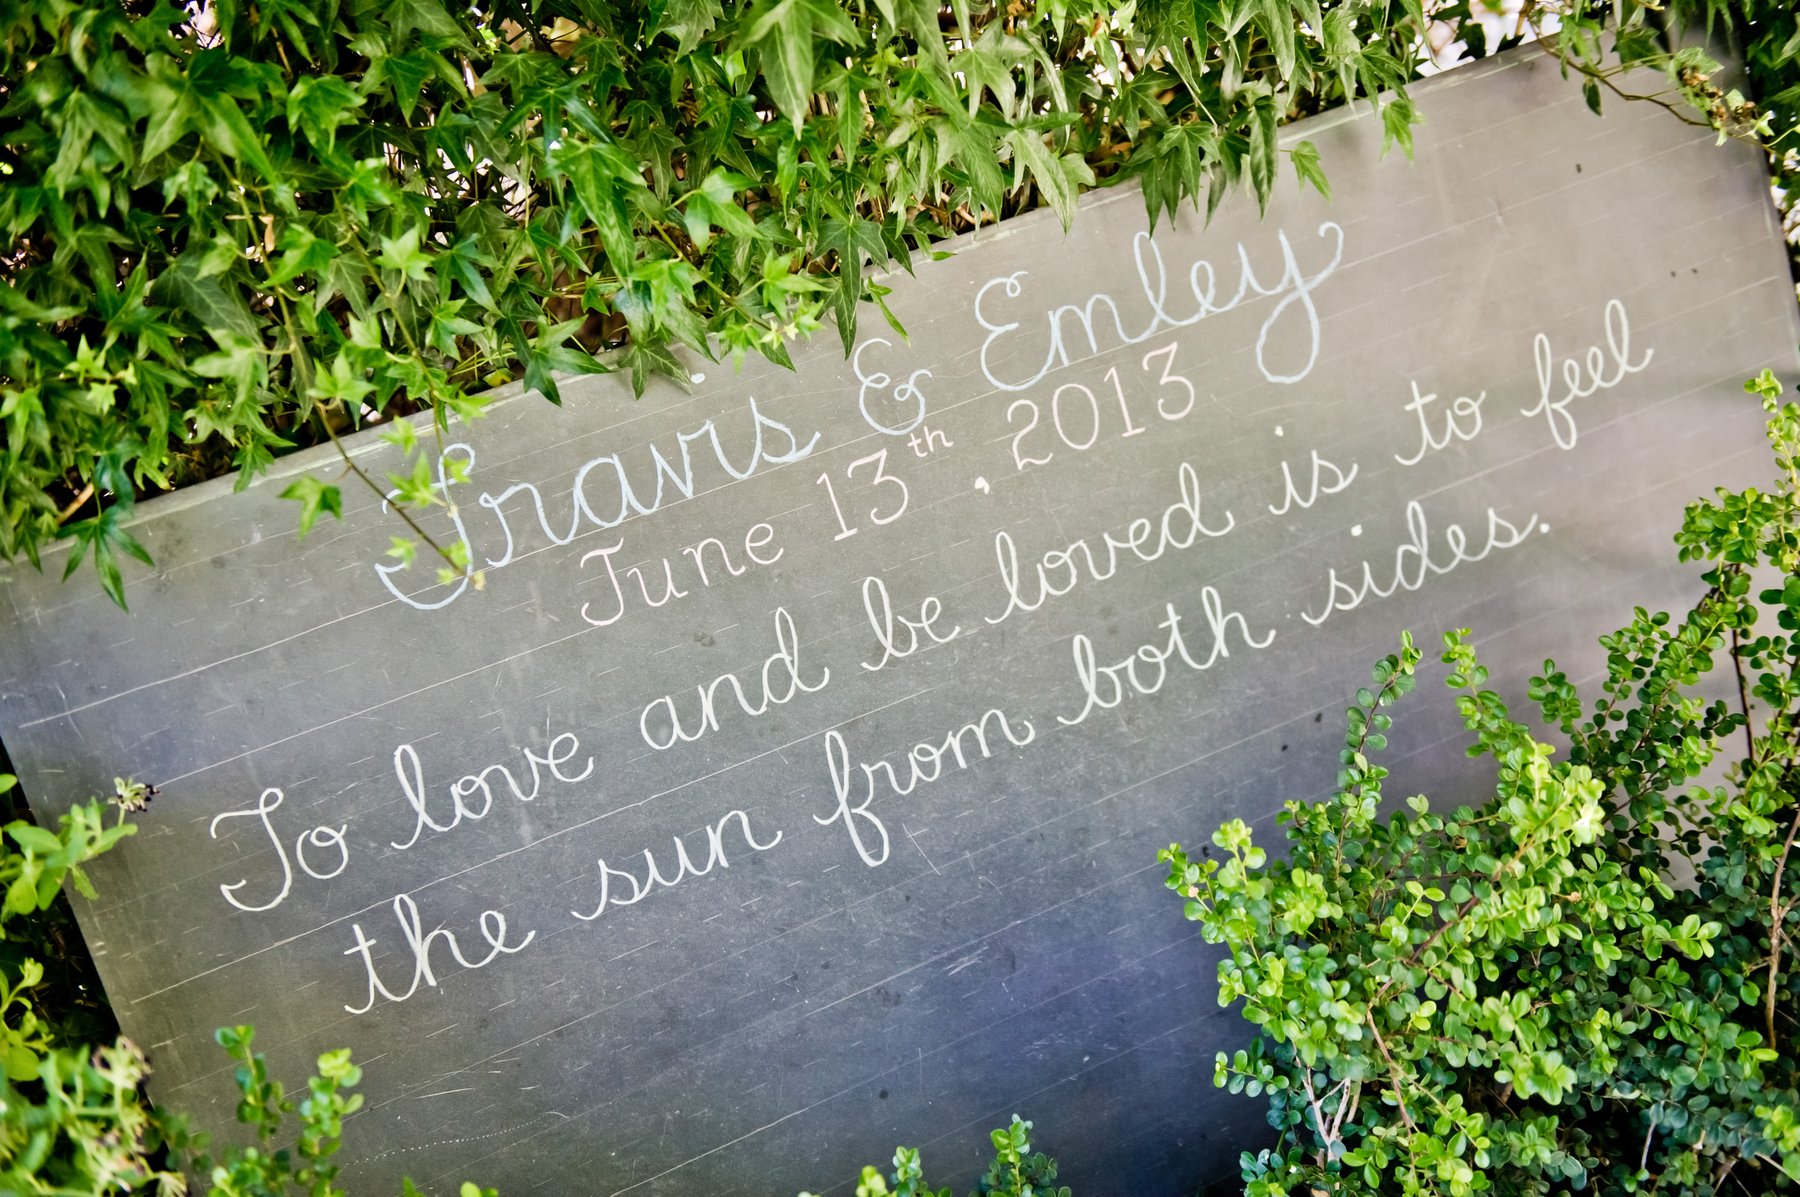 Travis & Emley
June 13th, 2013
To love and be loved is to feel
the sun from both sides.